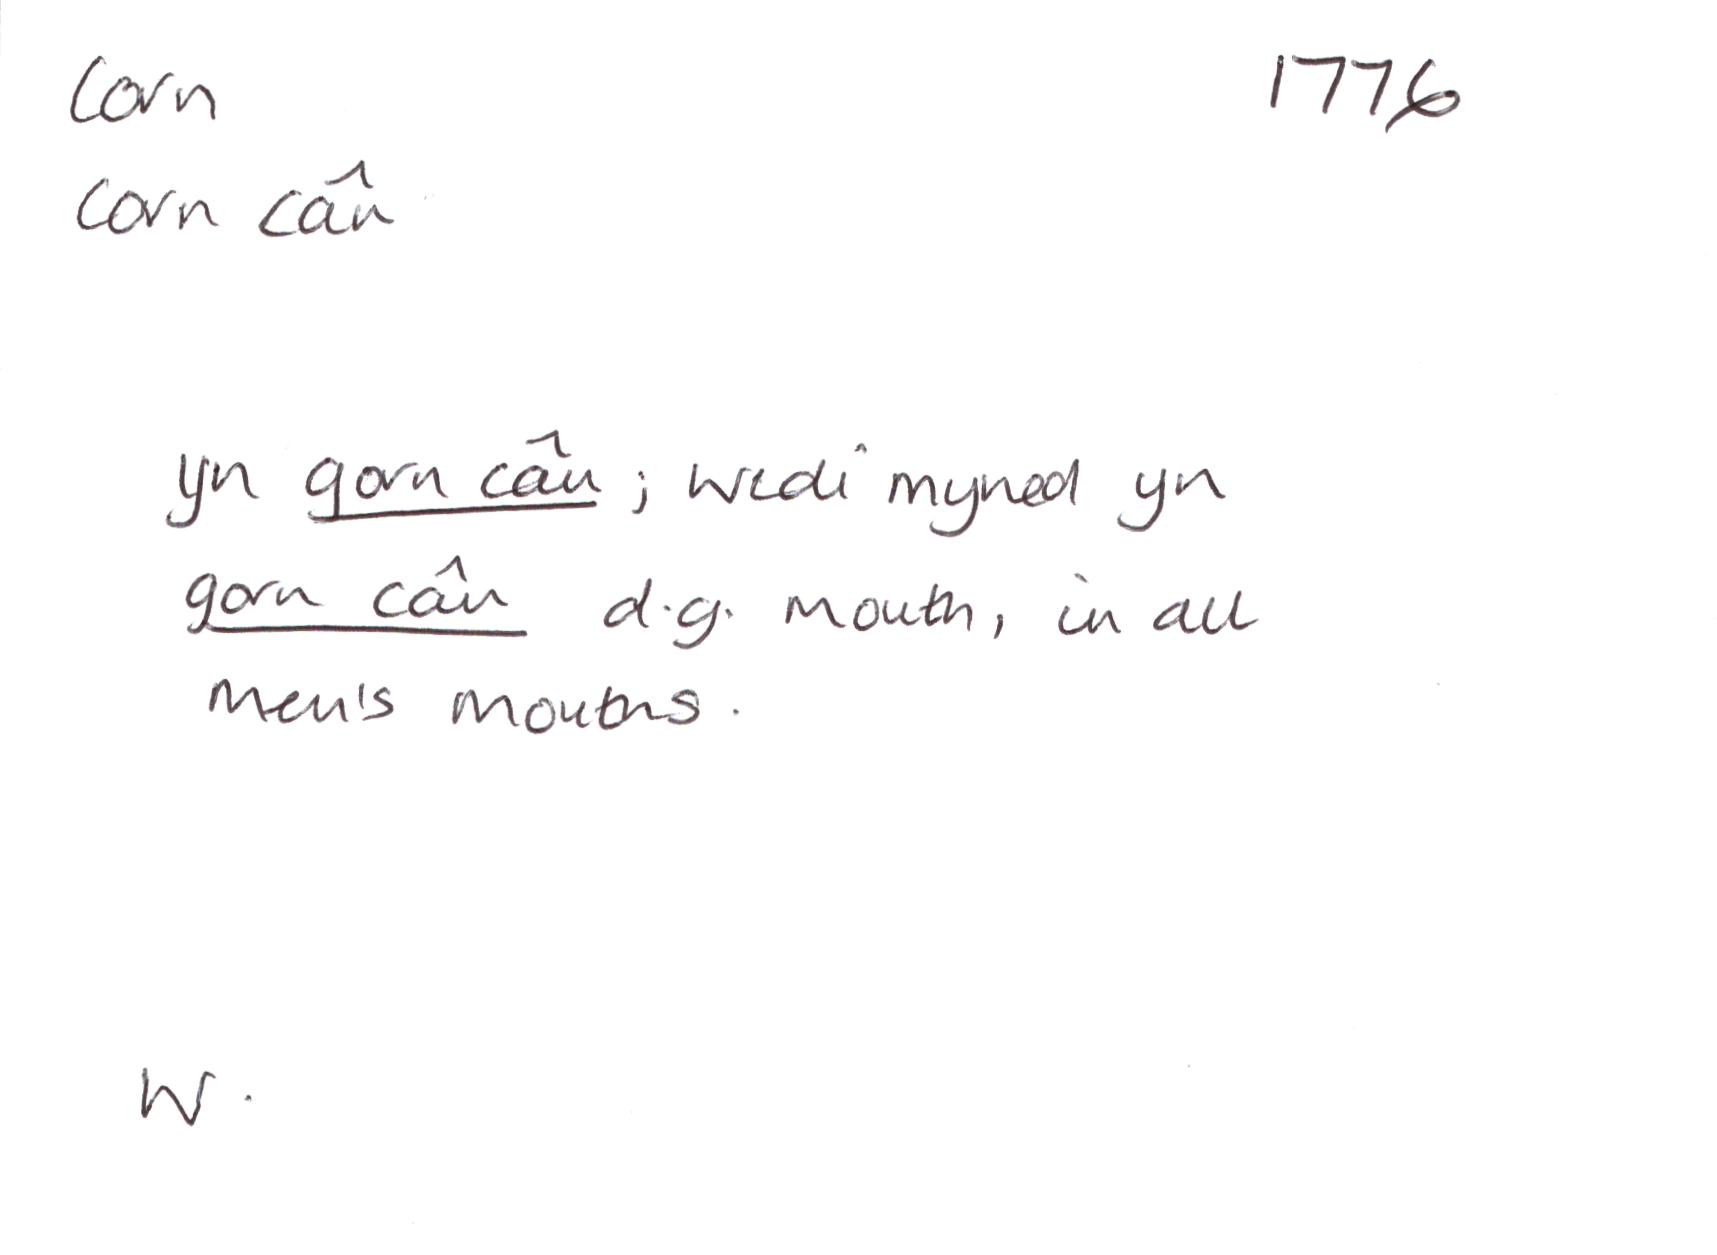 Corn 1776
Corn cân
yn gorn cân; wedi myned yn
gorn cân d.g. mouth, in all
men's mouths.
W.